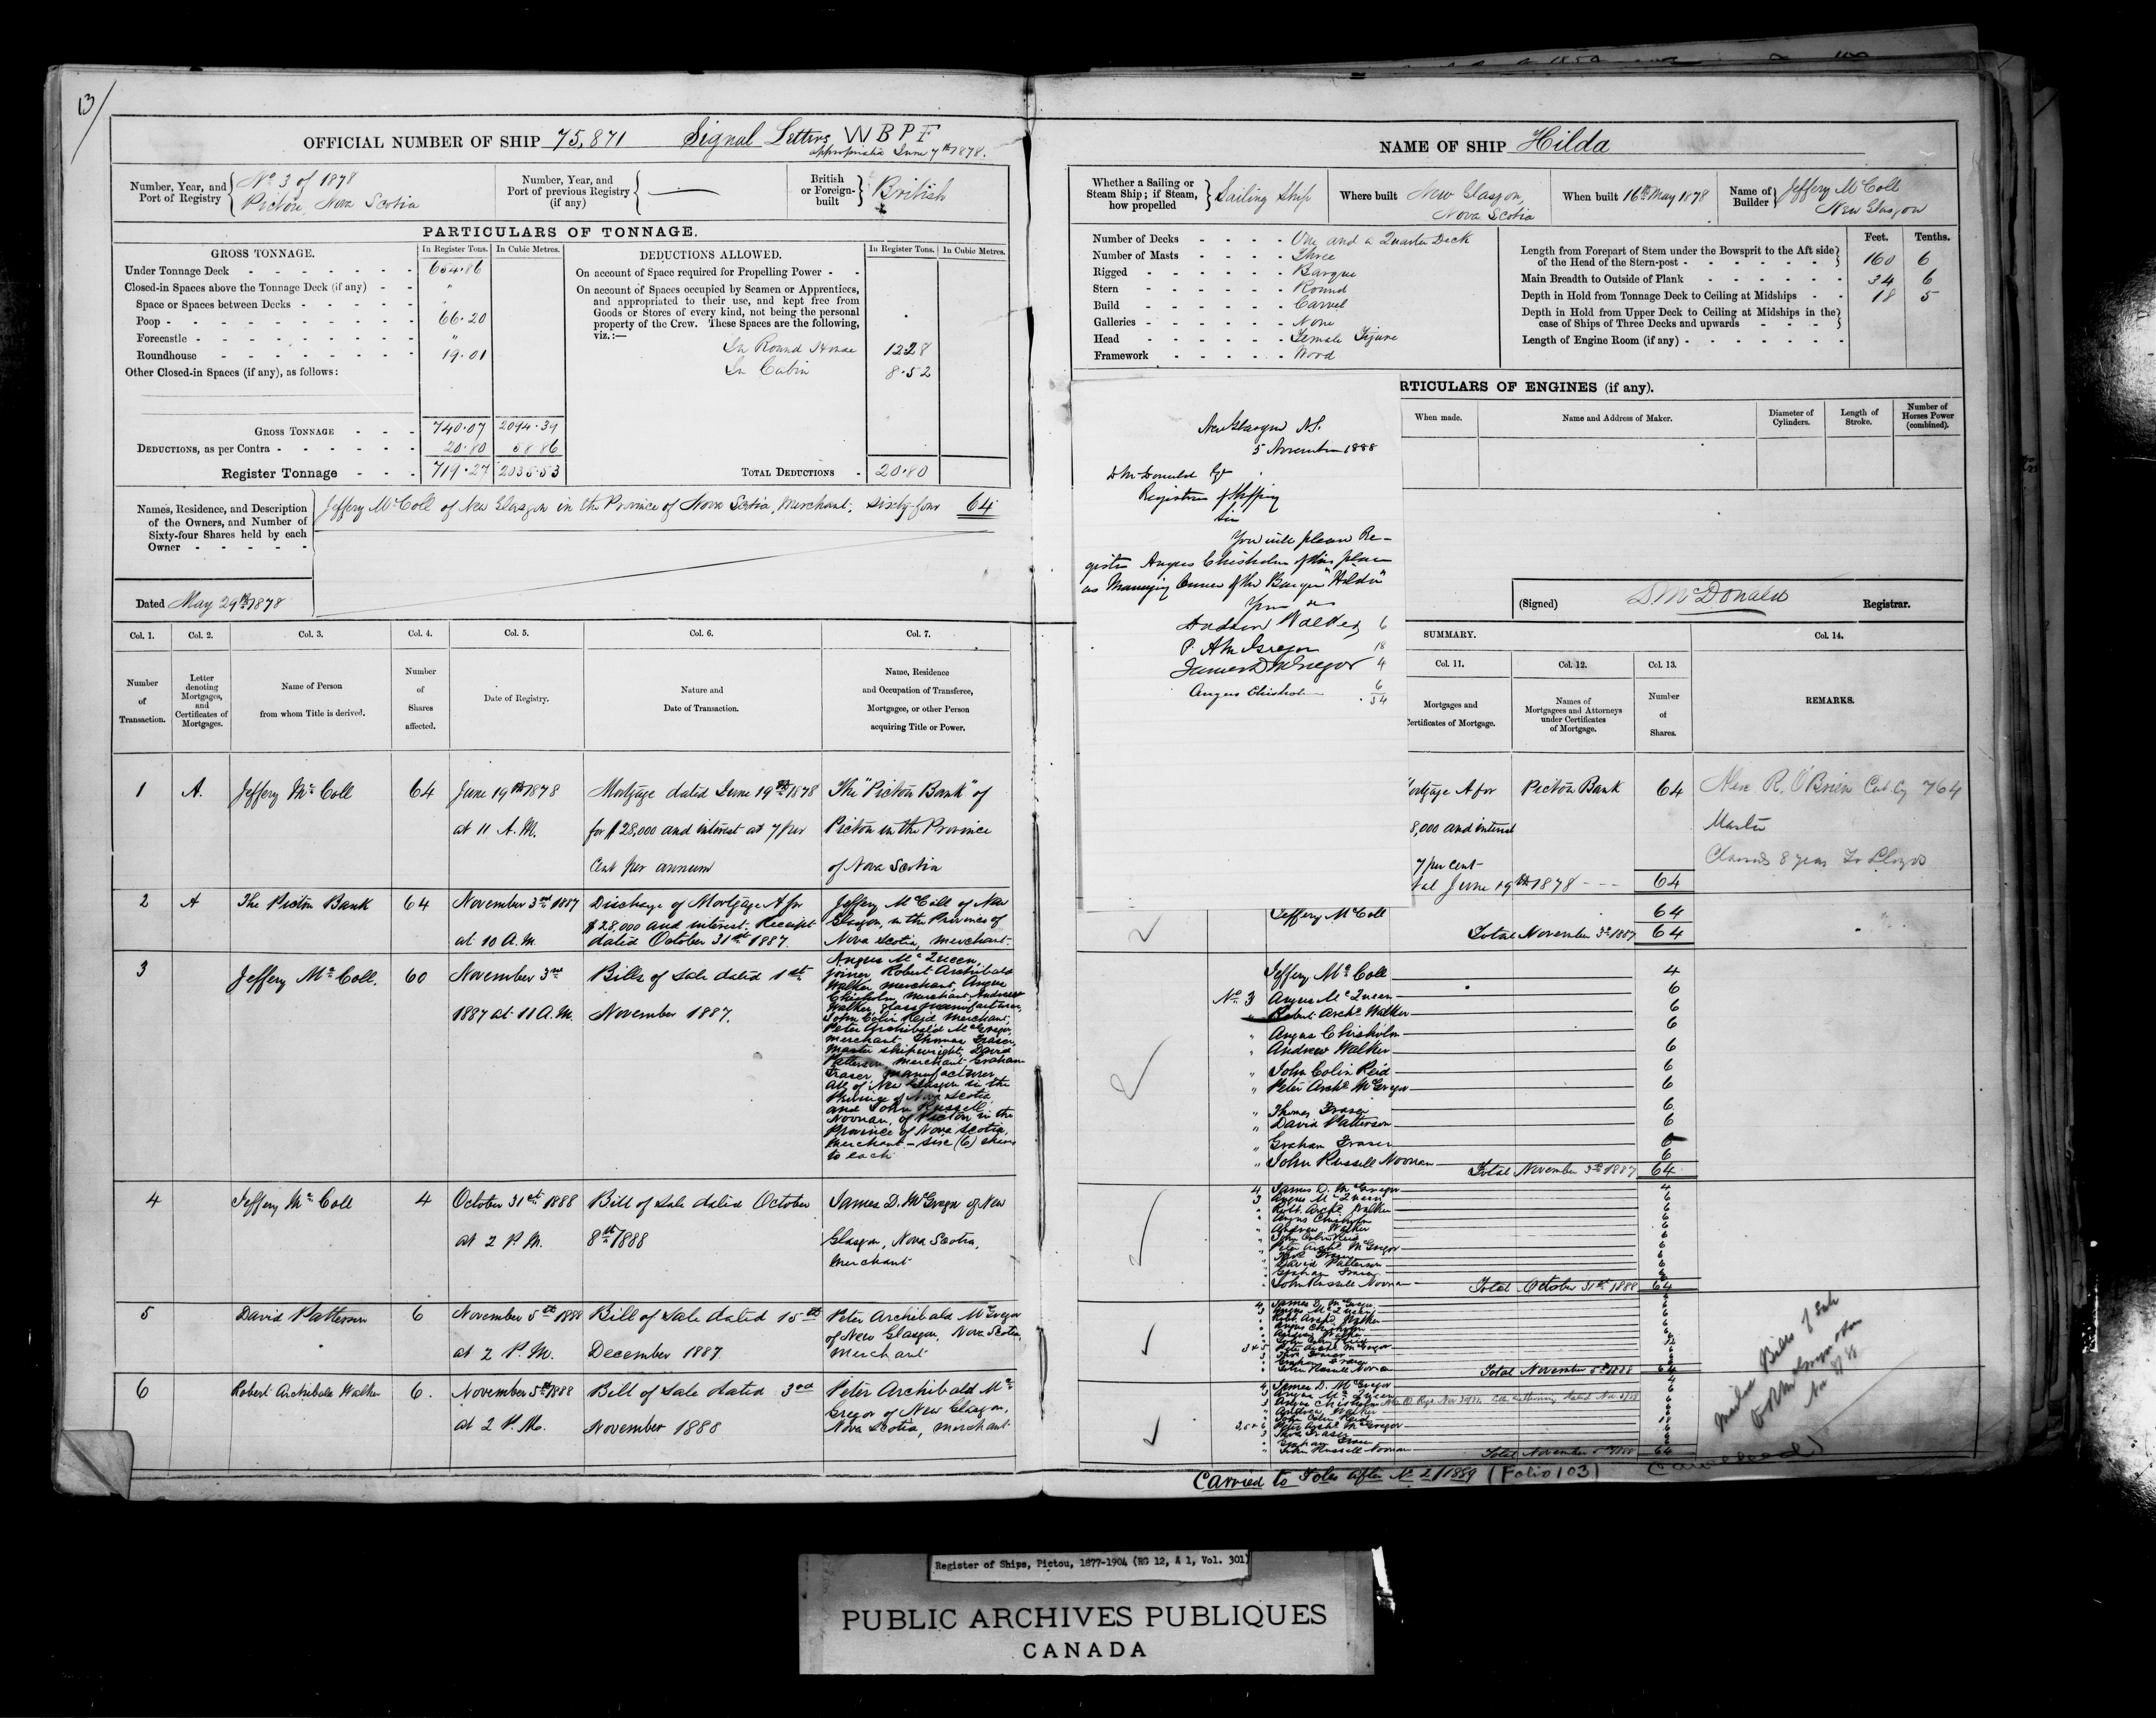 13/
OFFICIAL NUMBER OF SHIP 75,871 Signal Letters W B P F
appropriated June 7th 1878.
Number, Year, and Port of Registry { No 3 of 1878
Pictou, Nova Scotia
Number, Year, and Port of previous Registry (if any) { —
British or Foreign-built } British
PARTICULARS OF TONNAGE.
GROSS TONNAGE. In Register Tons. In Cubic Metres.
Under Tonnage Deck 654.86
Closed-in Spaces above the Tonnage Deck (if any) "
Space or Spaces between Decks "
Poop 66.20
Forecastle "
Roundhouse 19.01
Other Closed-in Spaces (if any), as follows:
GROSS TONNAGE 740.07 2094.39
DEDUCTIONS, as per Contra 20.80 58.86
Register Tonnage 719.27 2035.53
DEDUCTIONS ALLOWED. In Register Tons. In Cubic Metres.
On account of Space required for Propelling Power
On account of Spaces occupied by Seamen or Apprentices,
and appropriated to their use, and kept free from
Goods or Stores of every kind, not being the personal
property of the Crew. These Spaces are the following,
viz.:—
In Round House 12.28
In Cabin 8.52
TOTAL DEDUCTIONS 20.80
Names, Residence, and Description
of the Owners, and Number of
Sixty-four Shares held by each
Owner
Jeffery McColl of New Glasgow in the Province of Nova Scotia, Merchant, Sixty-four 64
Dated May 29th 1878
Col. 1. Col. 2. Col. 3. Col. 4. Col. 5. Col. 6. Col. 7.
Number of Transaction.
Letter denoting Mortgages, and Certificates of Mortgages.
Name of Person from whom Title is derived.
Number of Shares affected.
Date of Registry.
Nature and Date of Transaction.
Name, Residence and Occupation of Transferee, Mortgagee, or other Person acquiring Title or Power.
1 A. Jeffery McColl 64 June 19th 1878 Mortgage dated June 19th 1878 The "Pictou Bank" of
at 11 A.M. for $28,000 and interest at 7 per Pictou in the Province
Cent per annum of Nova Scotia
2 A The Pictou Bank 64 November 3rd 1887 Discharge of Mortgage A for Jeffery McColl of New
$28,000 and interest. Receipt Glasgow, in the Province of
at 10 A.M. dated October 31st 1887. Nova Scotia, merchant
3 Jeffery McColl. 60 November 3rd Bills of Sale dated 1st
1887 at 11 A.M. November 1887.
Angus McQueen,
joiner, Robert Archibald
Walker merchant, Angus
Chisholm, merchant, Andrew
Walker, glass manufacturer,
John Colin Reid merchant,
Peter Archibald McGregor,
merchant, Thomas Fraser,
master shipwright, David
Patterson, merchant, Graham
Fraser, manufacturer,
all of New Glasgow in the
Province of Nova Scotia,
and John Russell
Noonan, of Pictou in the
Province of Nova Scotia,
merchant — six (6) shares
to each
4 Jeffery McColl 4 October 31st 1888 Bill of Sale dated October James D. McGregor of New
at 2 P.M. 8th 1888 Glasgow, Nova Scotia,
merchant
5 David Patterson 6 November 5th 1888 Bill of Sale dated 15th Peter Archibald McGregor
of New Glasgow, Nova Scotia,
at 2 P.M. December 1887. merchant
6 Robert Archibald Walker 6. November 5th 1888 Bill of Sale dated 3rd Peter Archibald Mc
Gregor of New Glasgow,
at 2 P.M. November 1888 Nova Scotia, merchant
NAME OF SHIP Hilda
Whether a Sailing or Steam Ship; if Steam, how propelled } Sailing Ship
Where built New Glasgow, Nova Scotia
When built 16th May 1878
Name of Builder } Jeffery McColl
New Glasgow
Number of Decks One and a Quarter Deck
Number of Masts Three
Rigged Barque
Stern Round
Build Carvel
Galleries None
Head Female Figure
Framework Wood
Feet. Tenths.
Length from Forepart of Stem under the Bowsprit to the Aft side
of the Head of the Stern-post 160 6
Main Breadth to Outside of Plank 34 6
Depth in Hold from Tonnage Deck to Ceiling at Midships 18 5
Depth in Hold from Upper Deck to Ceiling at Midships in the
case of Ships of Three Decks and upwards
Length of Engine Room (if any)
RTICULARS OF ENGINES (if any).
When made. Name and Address of Maker. Diameter of Cylinders. Length of Stroke. Number of Horses Power (combined).
New Glasgow N.S.
5 November 1888
D McDonald Esq
Registrar of Shipping
Sir
You will please Re-
gister Angus Chisholm of this place
as Managing Owner of the Barque "Hilda"
Andrew Walker 6
P. A McGregor 18
James D McGregor 4
Angus Chisholm 6
34
(Signed) D. McDonald Registrar.
SUMMARY.
Col. 11. Col. 12. Col. 13. Col. 14.
Mortgages and
ertificates of Mortgage.
Names of Mortgagees and Attorneys under Certificates of Mortgage.
Number of Shares.
REMARKS.
ortgage A for Pictou Bank 64
8,000 and interest
7 per cent
tal June 19th 1878 64
R. O'Brien 764
Master
8 years Lloyds
Jeffery McColl 64
Total November 3rd 1887 64
Jeffery McColl 4
No 3 Angus McQueen 6
" Robert Archd Walker 6
" Angus Chisholm 6
" Andrew Walker 6
" John Colin Reid 6
" Peter Archd McGregor 6
" Thomas Fraser 6
" David Patterson 6
" Graham Fraser 6
" John Russell Noonan 6
Total November 3rd 1887 64
4 James D. McGregor 4
3 Angus McQueen 6
" Robt. Archd. Walker 6
" Angus Chisholm 6
" Andrew Walker 6
" John Colin Reid 6
" Peter Archd McGregor 6
" Thos Fraser 6
" David Patterson 6
" Graham Fraser 6
" John Russell Noonan 6
Total October 31st 1888 64
4 James D. McGregor
3 Angus McQueen
" Robt Archd Walker
" Angus Chisholm
" Andrew Walker
" John Colin Reid
3 & 5 Peter Archd McGregor
3 Thos Fraser
" Graham Fraser
" John Russell Noonan
Total November 5th 1888 64
4 James D. McGregor
3 Angus McQueen
3 Angus Chisholm
" Andrew Walker
" John Colin Reid
3, 5 & 6 Peter Archd McGregor 18
3 Thos Fraser
" Graham Fraser
" John Russell Noonan
Total November 5th 1888 64
Bills of Sale
Carried to Folio after No 2/1889 (Folio 103)
Register of Ships, Pictou, 1877-1904 (RG 12, A 1, Vol. 301)
PUBLIC ARCHIVES PUBLIQUES
CANADA